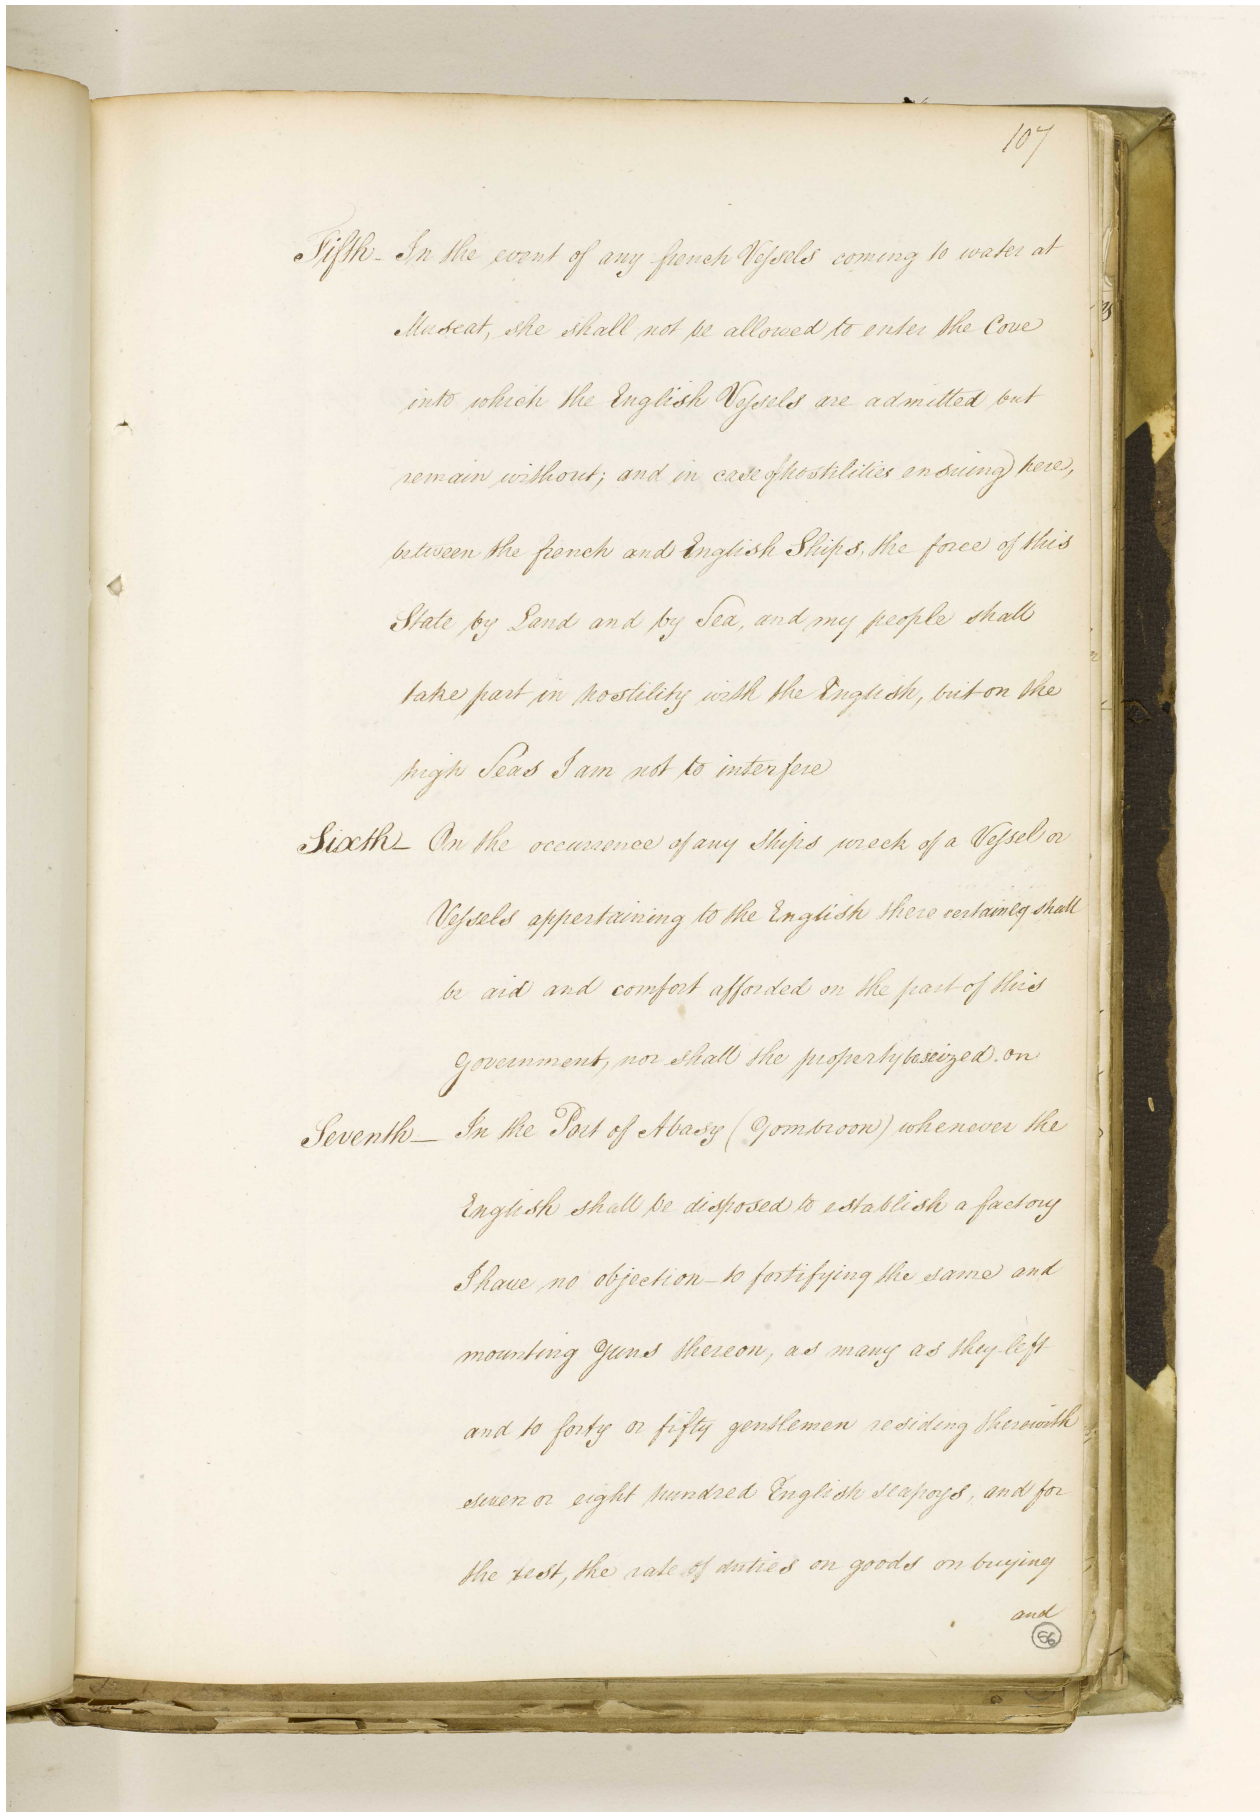 107
Fifth - In the event of any french Vessels coming to water at
Muscat, she shall not be allowed to enter the Cove
into which the English Vessels are admitted but
remain without; and in case of hostilities ensuing here,
between the french and English Ships, the force of this
State by Land and by Sea, and my people shall
take part in hostility with the English, but on the
high Seas I am not to interfere
Sixth - On the occurrence of any Ships wreck of a Vessel or
Vessels appertaining to the English there certainly shall
be aid and comfort afforded on the part of this
Government, nor shall the property be seized. on
Seventh - In the Port of Abasy (Gombroon) whenever the
English shall be disposed to establish a factory
I have no objection - to fortifying the same and
mounting Guns thereon, as many as they left
and to forty or fifty gentlemen residing there with
seven or eight hundred English seapoys, and for
the rest, the rate of duties on goods on buying
and
56